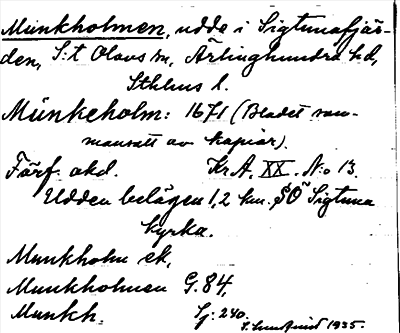 Munkholmen, udde i Sigtunafjär-
den, S:t Olovs sn, Ärlinghundra hd,
Sthlms l.
Münkeholm: 1671 (Bladet sam-
mansatt av kopior).
Färf. okd. Kr.A. XX. N:o 13.
Udden belägen 1,2 km. SÖ Sigtuna
kyrka.
Munkholm ek.
Munkholmen G. 84,
Munkh. Sj. 240.
1935.